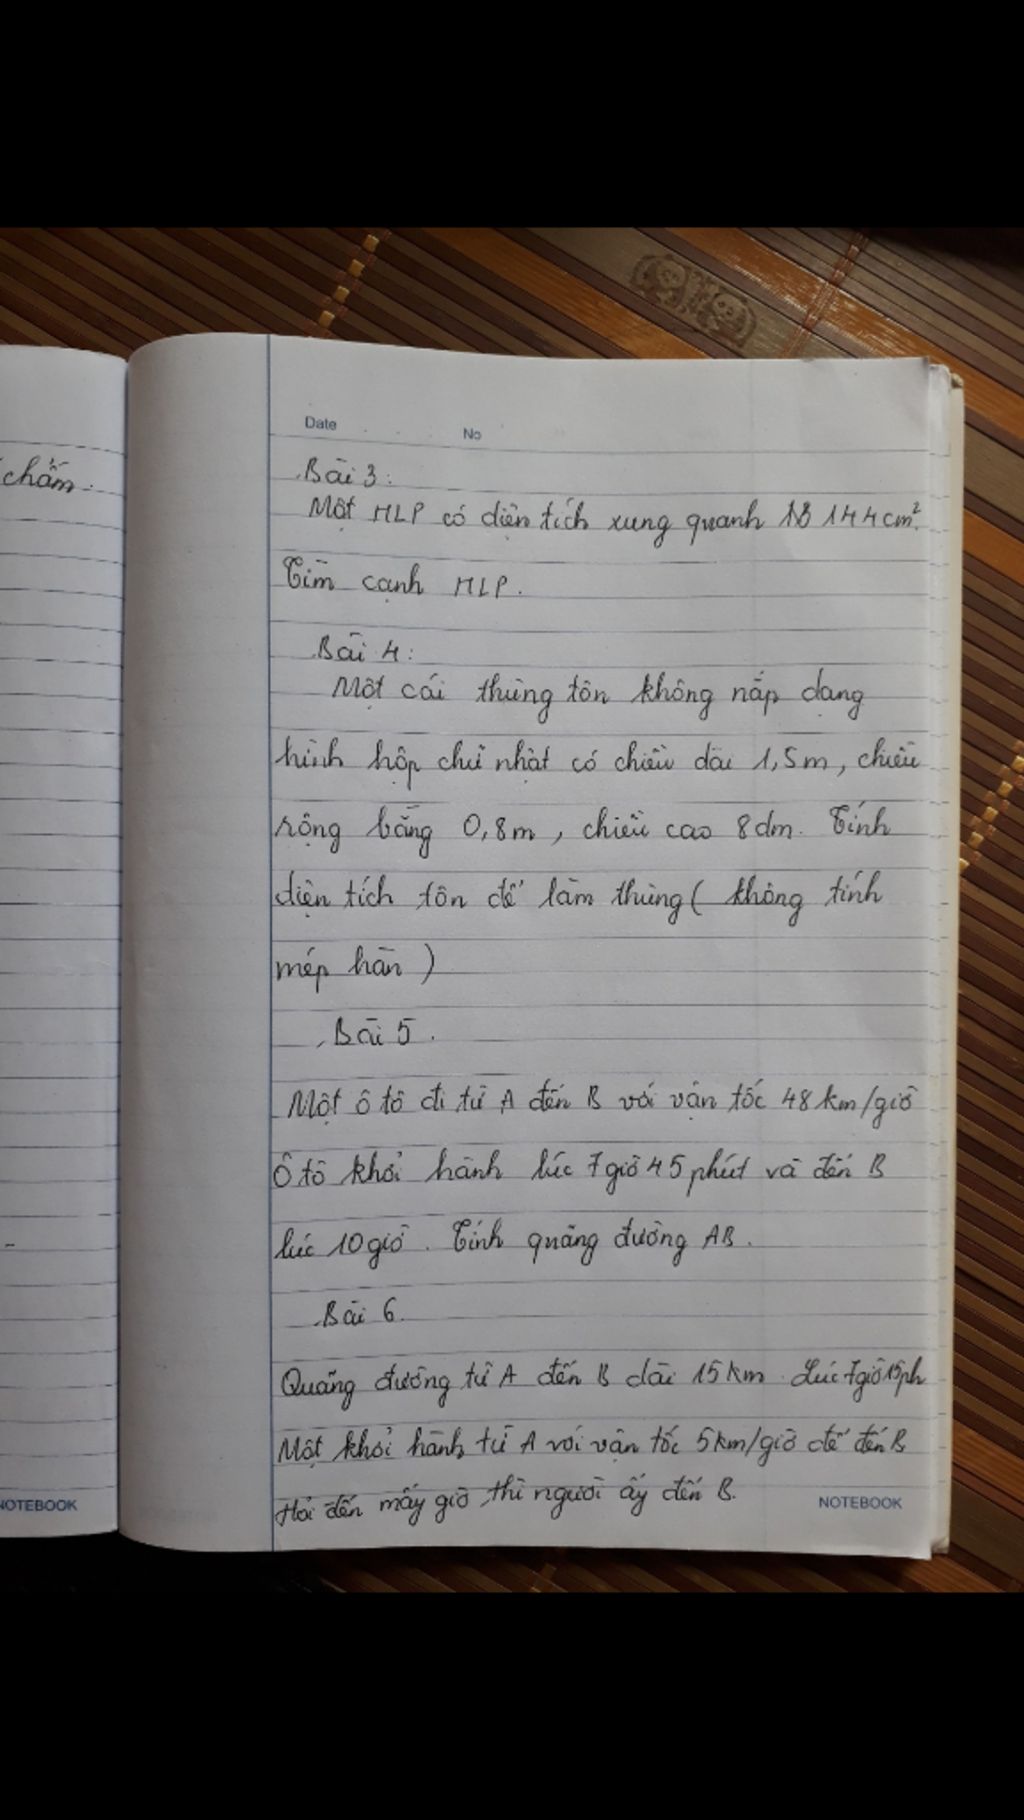 chấm.
Date No
Bài 3:
Một HLP có diện tích xung quanh là 144cm².
Tìm cạnh HLP.
Bài 4:
Một cái thùng tôn không nắp dạng
hình hộp chữ nhật có chiều dài 1,5m, chiều
rộng bằng 0,8m, chiều cao 8dm. Tính
diện tích tôn để làm thùng ( không tính
mép hàn )
Bài 5.
Một ô tô đi từ A đến B với vận tốc 48km/giờ
Ô tô khởi hành lúc 7giờ 45 phút và đến B
lúc 10giờ. Tính quãng đường AB.
Bài 6.
Quãng đường từ A đến B dài 15km. Lúc 7giờ15ph
Một khởi hành từ A với vận tốc 5km/giờ để đến B
Hỏi đến mấy giờ thì người ấy đến B.
NOTEBOOK NOTEBOOK